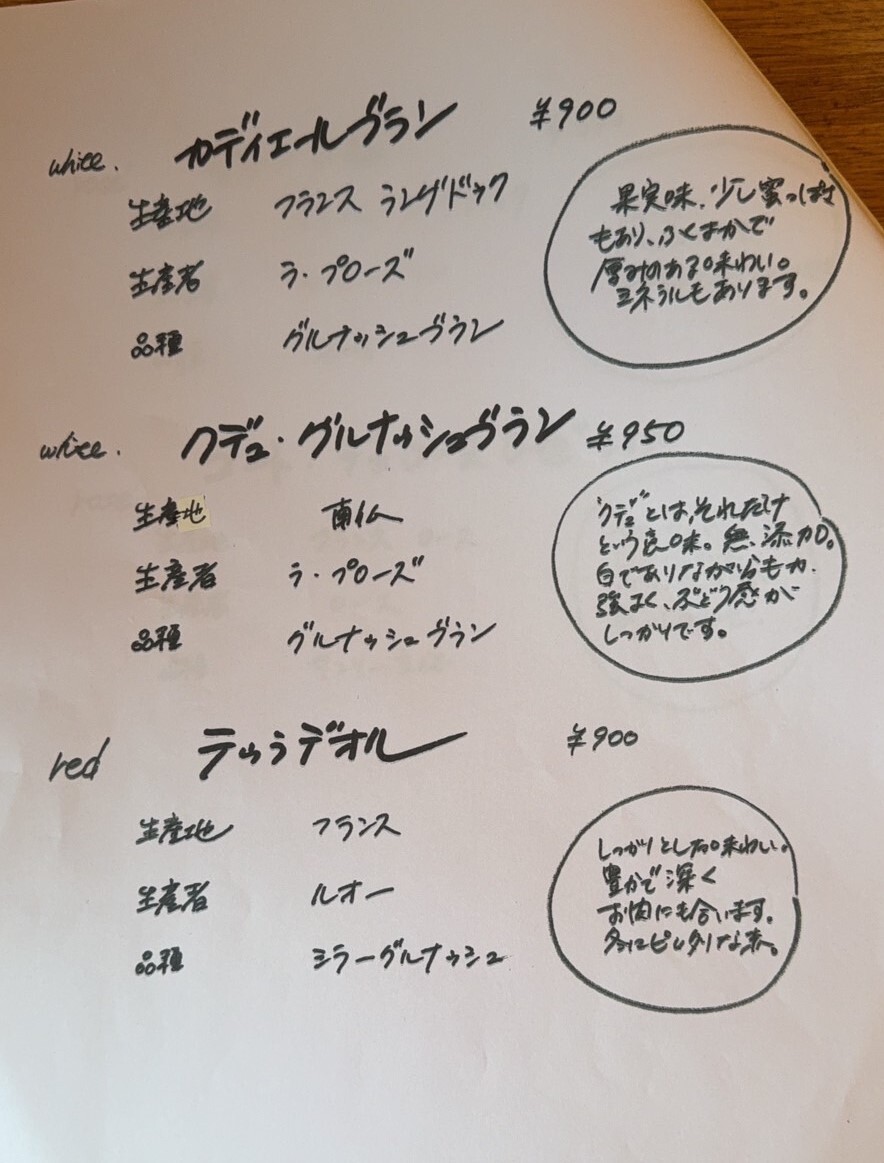 white. カディエールブラン ¥900
生産地 フランス ラングドック
生産者 ラ・プローズ
品種 グルナッシュブラン
果実味、少し蜜っぽさ
もあり、ふくよかで
厚みのある味わい。
ミネラルもあります。
white. クデュ・グルナッシュブラン ¥950
生産地 南仏
生産者 ラ・プローズ
品種 グルナッシュブラン
"クデュ"とは、それだけ
という意味。無添加。
白でありながらも力
強よく、ぶどう感が
しっかりです。
red テゥラデオル ¥900
生産地 フランス
生産者 ルオー
品種 シラーグルナッシュ
しっかりとした味わい。
豊かで深く
お肉にも合います。
冬にピッタリな赤。